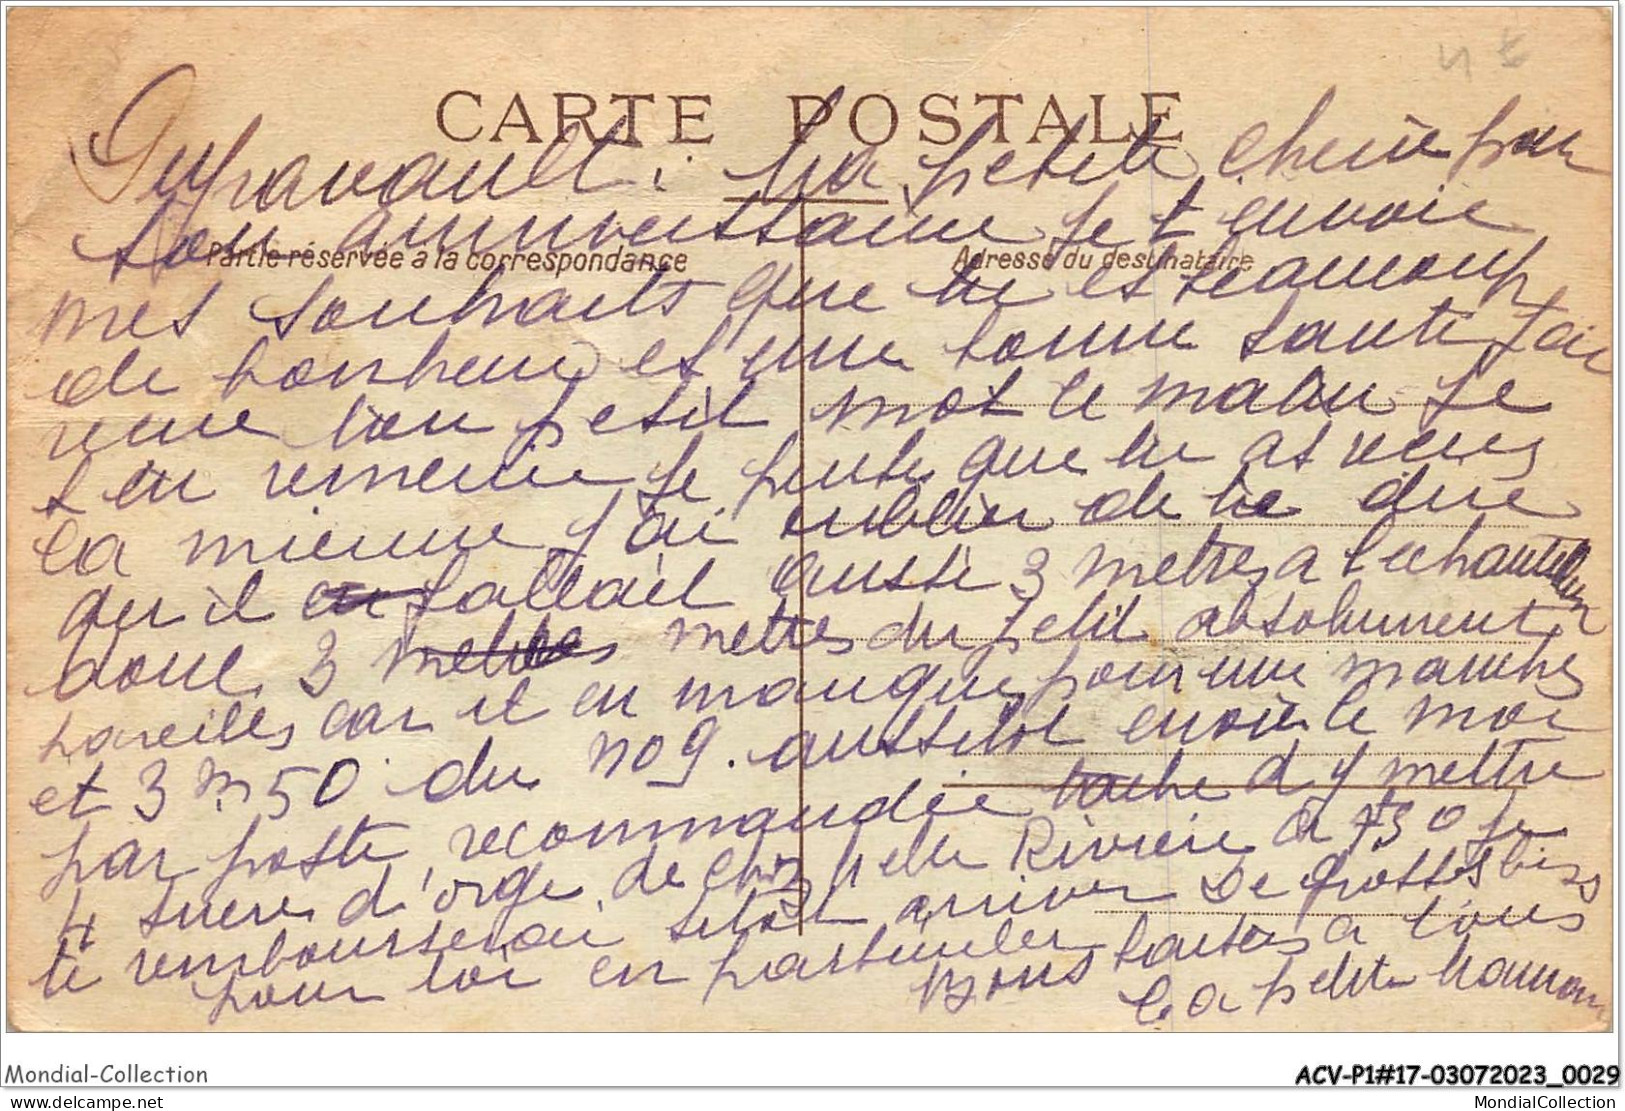 4 €
CARTE POSTALE
Guyravault. Ma petite cherie pour
Partie réservée à la correspondance
Adresse du destinataire
ton anniverssaire je t envoie
mes souhaits que tu es beaucoup
de bonheur et une bonne sante J ai
recue ton petit mot ce matin je
t en remercie je pense que tu as recus
la mienne j ai oublier de te dire
qu il en fallait aussi 3 metres a l echantillon
donc 3 metres metres du petit absolument
pareilles car il en manque pour une manches
et 3 m 50 du no 9. aussitot envoie le moi
par poste recommandée tache d y mettre
4 sucre d'orge de chez Melle Riviere à 1f30 je
te rembourserai sitot arriver De grosses bises
pour toi en particulier Bons baisers a tous
La petite Maman
Mondial-Collection
ACV-P1#17-03072023_0029
delcampe.net
MondialCollection